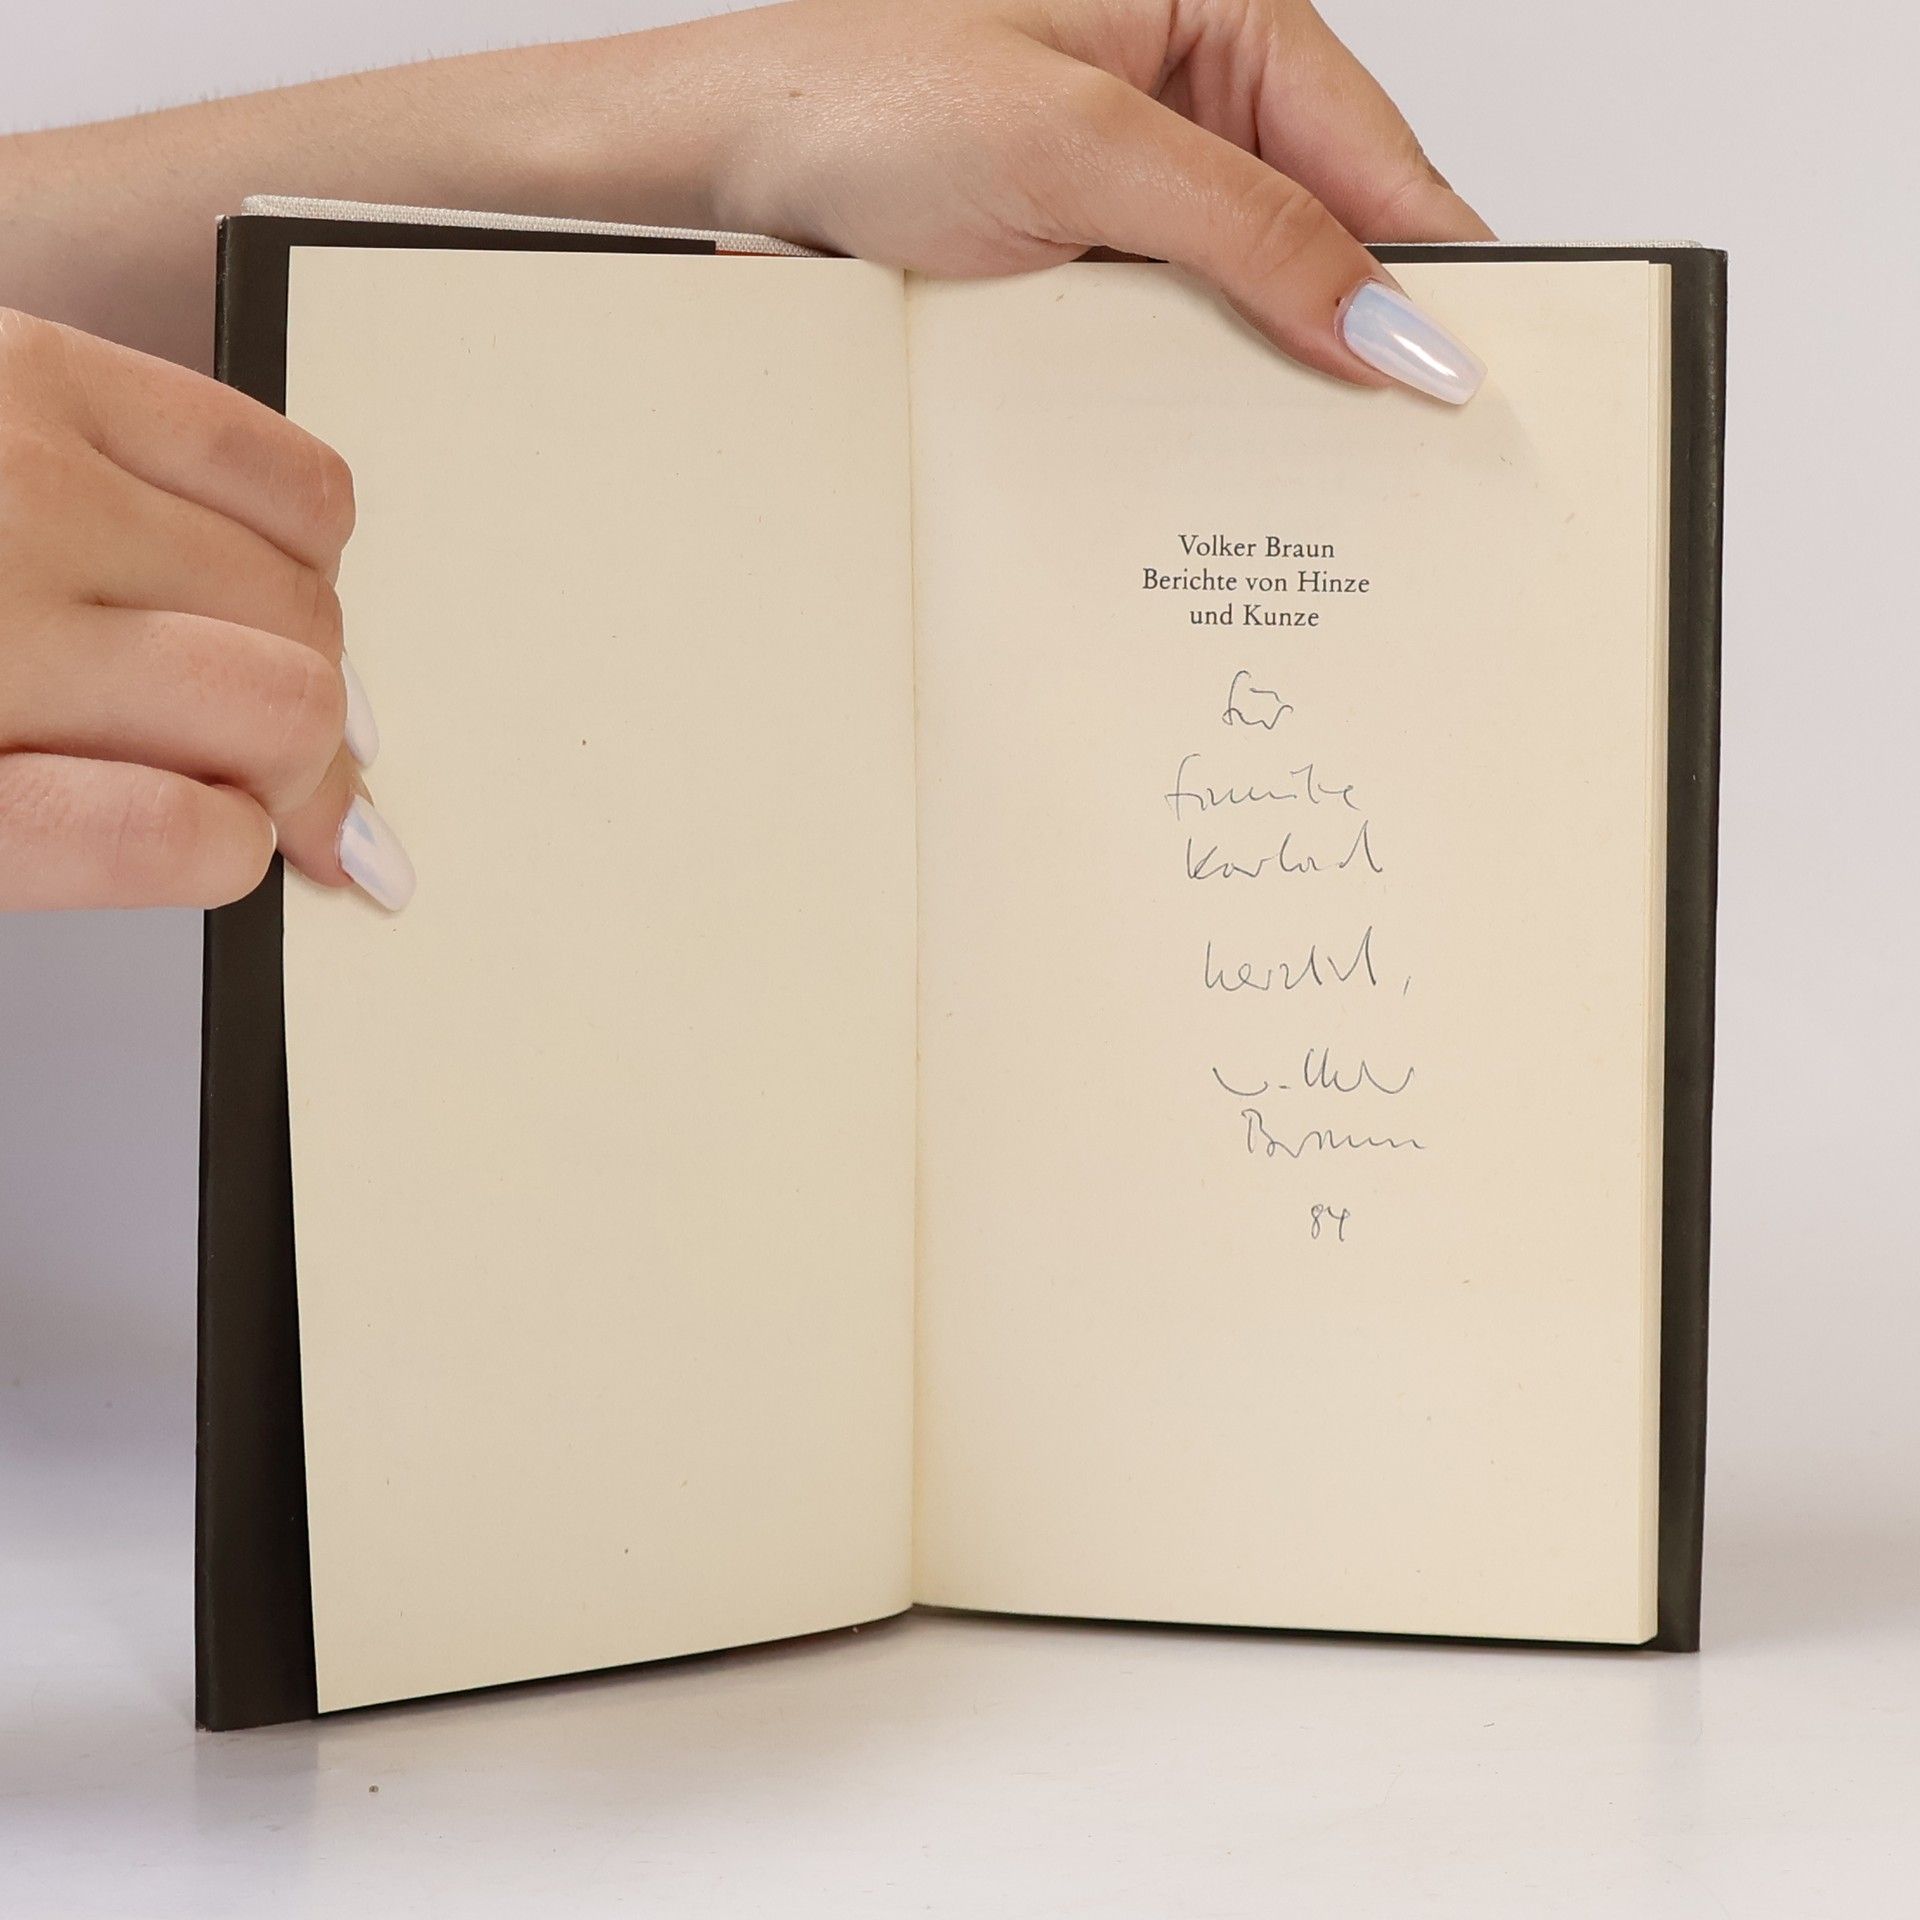 Volker Braun
Berichte von Hinze
und Kunze
für
Familie
herzlich,
Volker
Braun
84